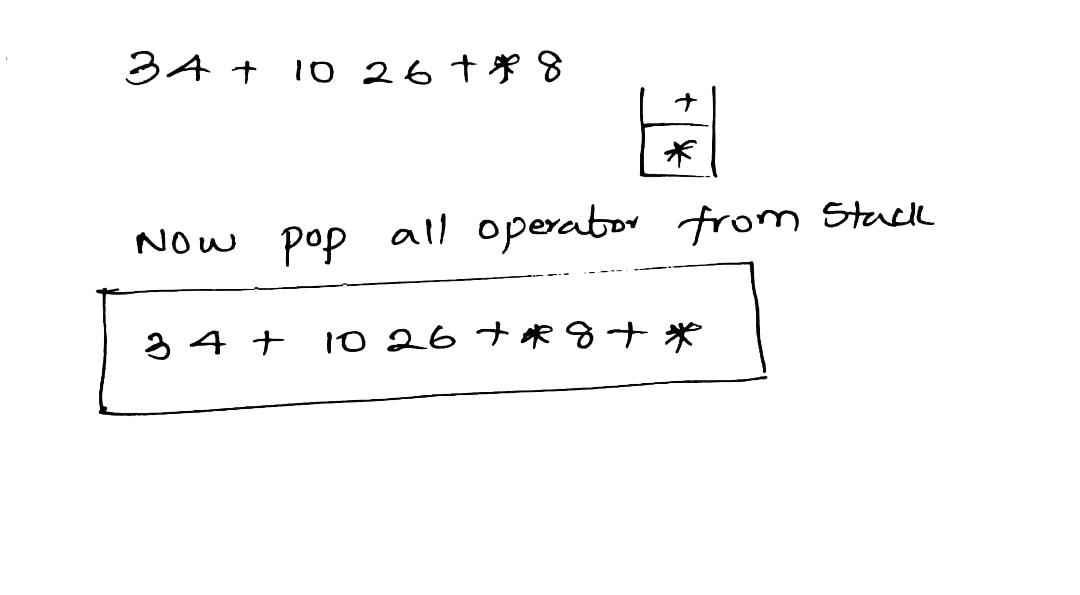 34 + 10 26 + * 8
+
*
Now pop all operator from Stack
3 4 + 10 26 + * 8 + *